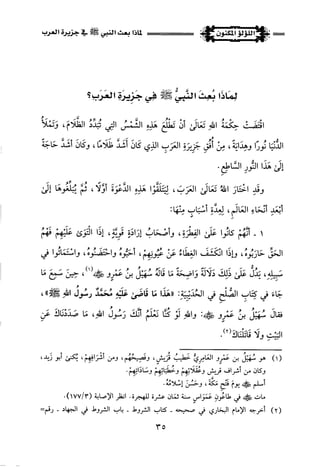 اللؤلؤ المكنون
لماذا بعث النبي ﷺ في جزيرة العرب
لِمَاذَا بُعِثَ النَّبِيُّ ﷺ فِي جَزِيرَةِ العَرَبِ؟
اقْتَضَتْ حِكْمَةُ اللهِ تَعَالَى أَنْ تَطْلُعَ هَذِهِ الشَّمْسُ التِي تُبَدِّدُ الظَّلَامَ، وَتَمْلَأُ
الدُّنْيَا نُورًا وهِدَايَةً، مِنْ أُفُقِ جَزِيرَةِ العَرَبِ الذِي كَانَ أَشَدَّ ظَلَامًا، وكَانَ أَشَدَّ حَاجَةً
إِلَى هَذَا النُّورِ السَّاطِعِ.
وقَدِ اخْتَارَ اللهُ تَعَالَى العَرَبَ، لِيَتَلَقَّوْا هَذِهِ الدَّعْوَةَ أَوَّلًا، ثُمَّ يُبَلِّغُوهَا إِلَى
أَبْعَدِ أَنْحَاءِ العَالَمِ، لِعِدَّةِ أَسْبَابٍ مِنْهَا:
١ - أَنَّهُمْ كَانُوا عَلَى الفِطْرَةِ، وأَصْحَابَ إِرَادَةٍ قَوِيَّةٍ، إِذَا الْتَوَى عَلَيْهِمْ فَهْمُ
الحَقِّ حَارَبُوهُ، وإِذَا انْكَشَفَ الغِطَاءُ عَنْ عُيُونِهِمْ، أَحَبُّوهُ واحْتَضَنُوهُ، واسْتَمَاتُوا فِي
سَبِيلِهِ، يَدُلُّ عَلَى ذَلِكَ دَلَالَةً وَاضِحَةً مَا قَالَهُ سُهَيْلُ بنُ عَمْرٍو ﵁(١)، حِينَ سَمِعَ مَا
جَاءَ فِي كِتَابِ الصُّلْحِ فِي الحُدَيْبِيَةِ: «هَذَا مَا قَاضَى عَلَيْهِ مُحَمَّدٌ رَسُولُ اللهِ ﷺ»،
فقَالَ سُهَيْلُ بنُ عَمْرٍو ﵁: واللهِ لَوْ كُنَّا نَعْلَمُ أَنَّكَ رَسُولُ اللهِ، مَا صَدَدْنَاكَ عَنِ
البَيْتِ ولَا قَاتَلْنَاكَ(٢).
(١) هو سُهَيْلُ بن عَمْرو العَامِرِيُّ خَطِيبُ قُرَيْشٍ، وفَصِيحُهُم، ومن أشْرَافِهِم، يُكنى أبو زيد،
وكان من أشراف قريش وعُقَلَائِهِم وخُطَبَائِهِم وسَادَاتِهِم.
أسلم ﵁ يوم فتح مكة، وحَسُنَ إسْلَامُهُ.
مات ﵁ في طاعون عَمَوَاس سنة ثمان عشرة للهجرة. انظر الإصابة (٣/١٧٧).
(٢) أخرجه الإمام البخاري في صحيحه - كتاب الشروط - باب الشروط في الجهاد - رقم=
٣٥